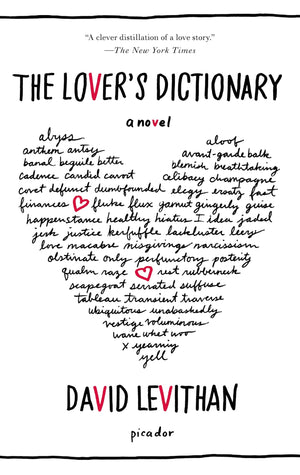 “A clever distillation of a love story.”
—The New York Times
THE LOVER'S DICTIONARY
a novel
abyss aloof
anthem antsy avant-garde balk
banal beguile better blemish breathtaking
cadence candid cavort celibacy champagne
covet defunct dumbfounded elegy ersatz fast
finances fluke flux gamut gingerly guise
happenstance healthy hiatus I idea jaded
jerk justice kerfuffle lackluster leery
love macabre misgivings narcissism
obstinate only perfunctory posterity
qualm raze rest rubberneck
scapegoat serrated suffuse
tableau transient traverse
ubiquitous unabashedly
vestige voluminous
wane whet woo
x yearning
yell
DAVID LEVITHAN
picador